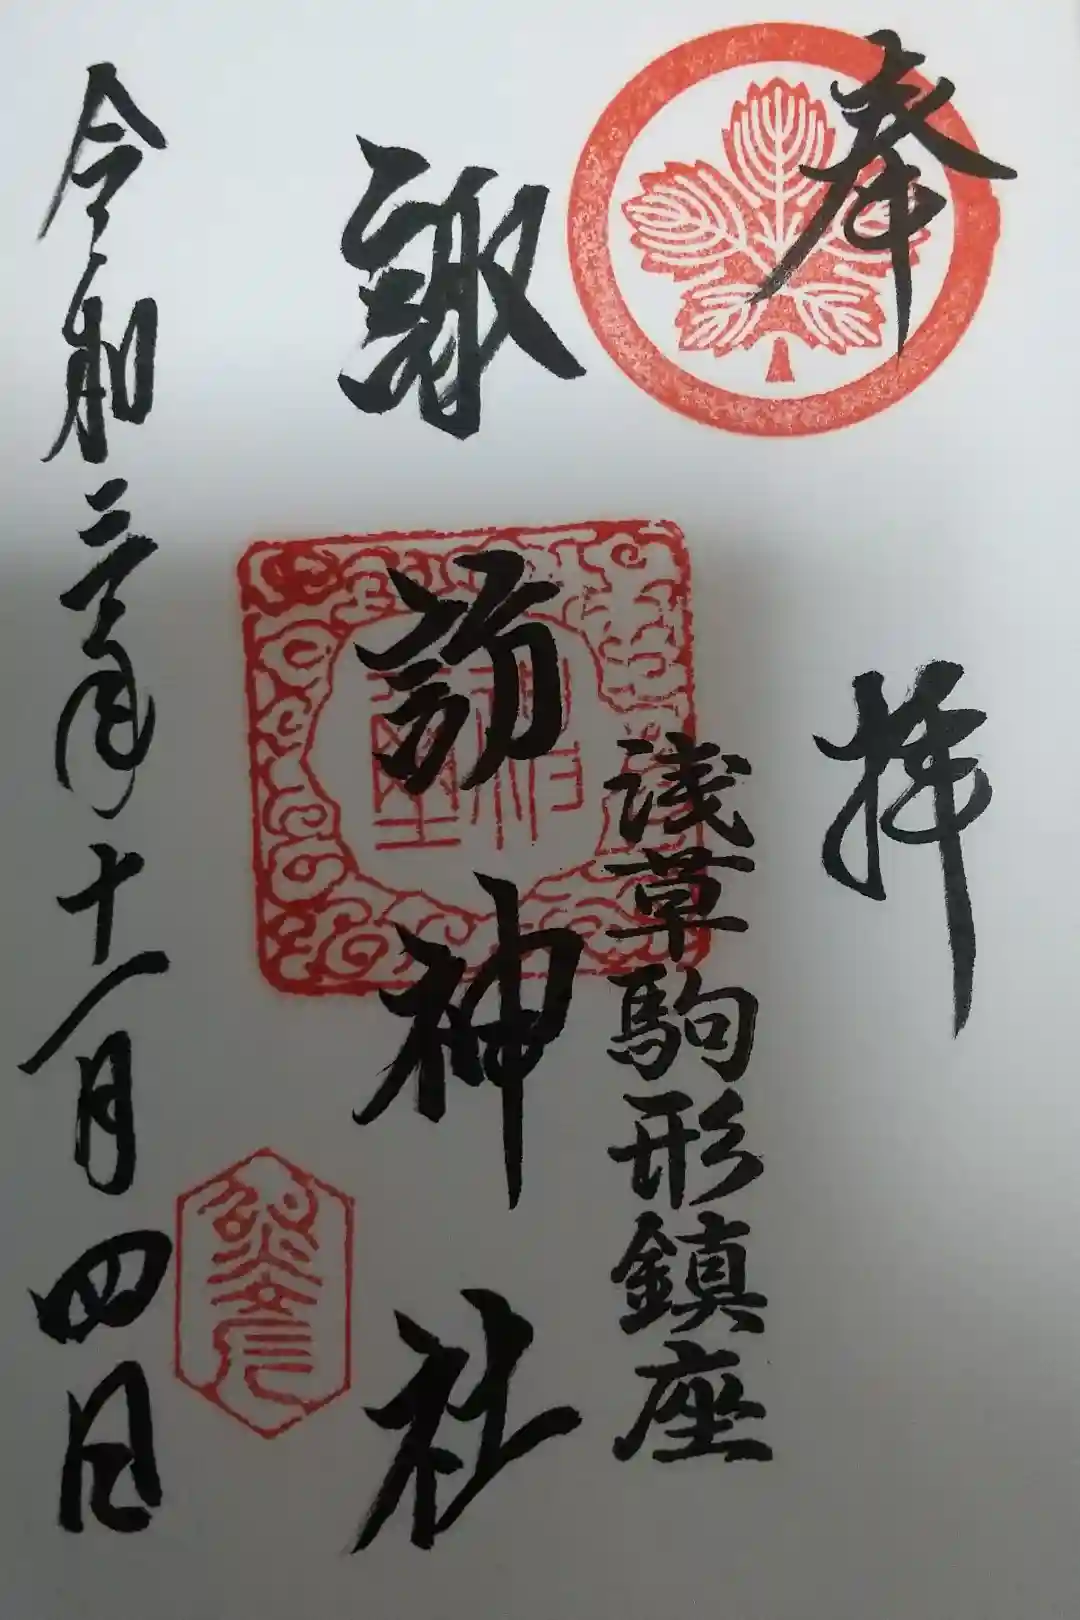 奉拝
浅草駒形鎮座
諏訪神社
令和三年十一月四日